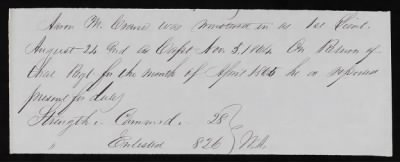 M. Crane was mustered in as 1st Lieut.
August 24 and as Capt Nov 3. 1864 On Return of
that Regt for the month of April 1865 he is reported
present for duty
Strength. Commd. 28
" Enlisted 826